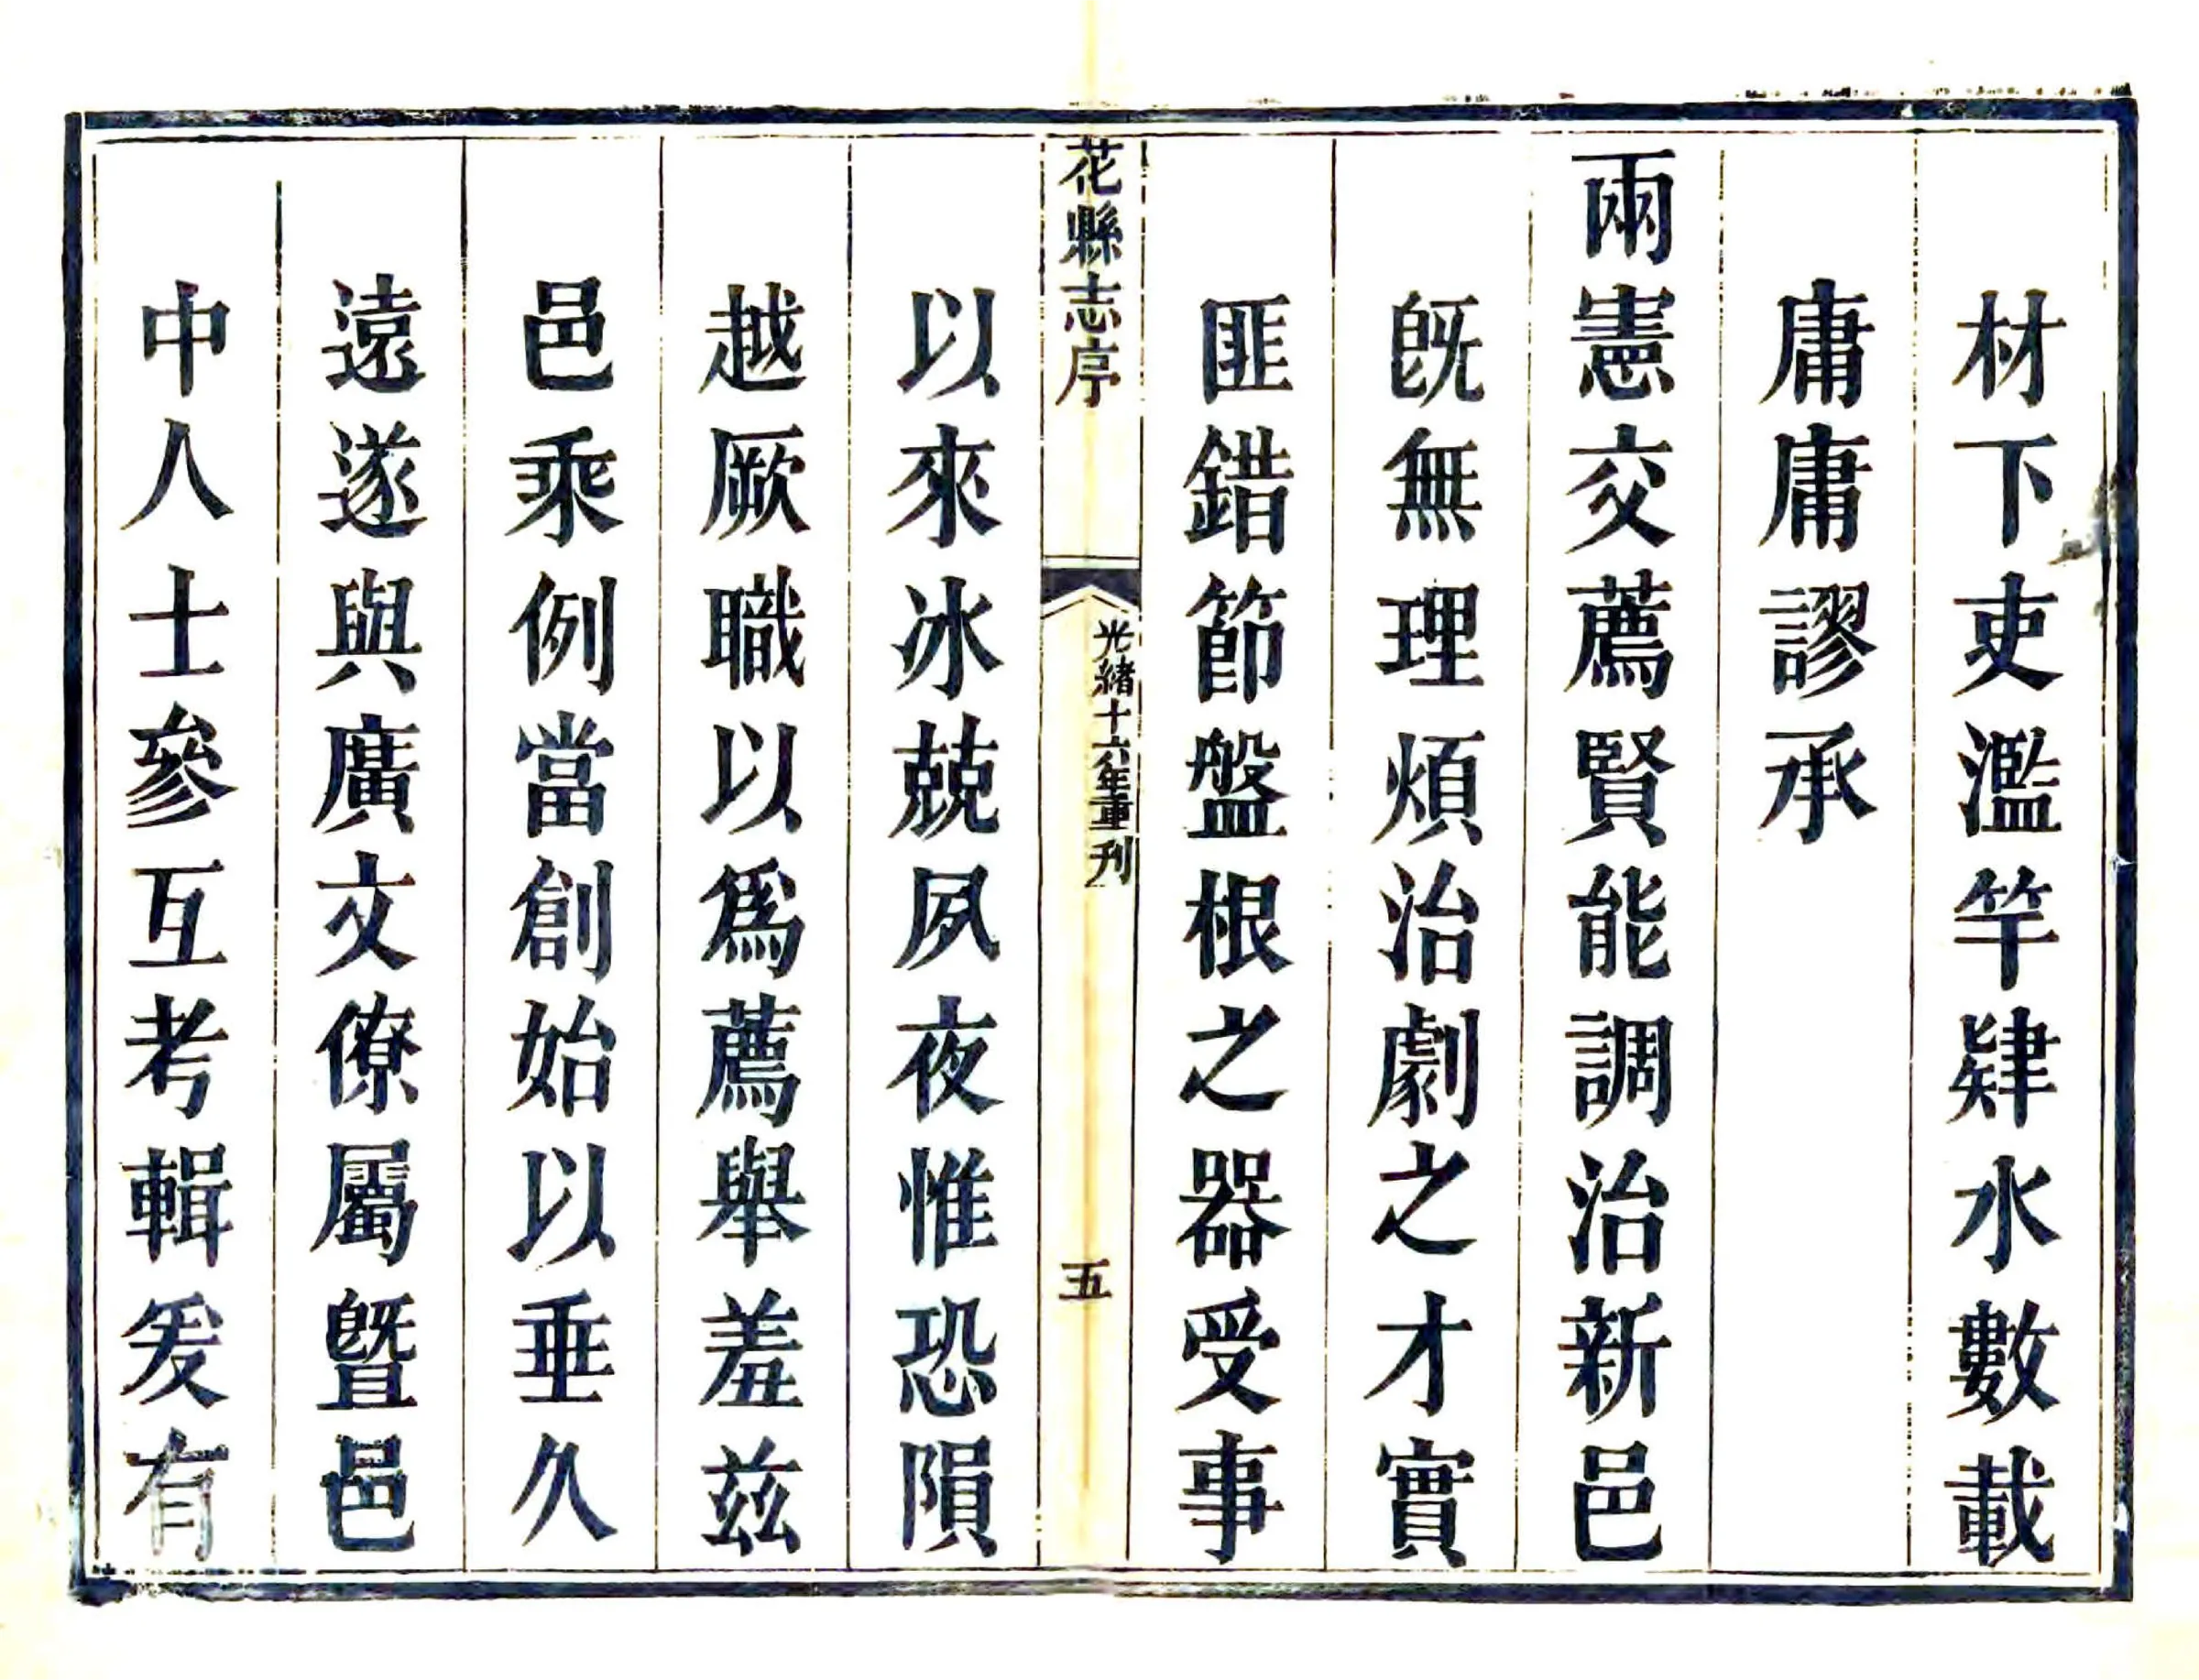 材下吏濫竽肄水數載
庸庸謬承
兩憲交薦賢能調治新邑
旣無理煩治劇之才實
匪錯節盤根之器受事
花縣志序
光緒十六年重刊
五
以來冰兢夙夜惟恐隕
越厥職以爲薦舉羞茲
邑乘例當創始以垂久
遠遂與廣文僚屬曁邑
中人士參互考輯爰有